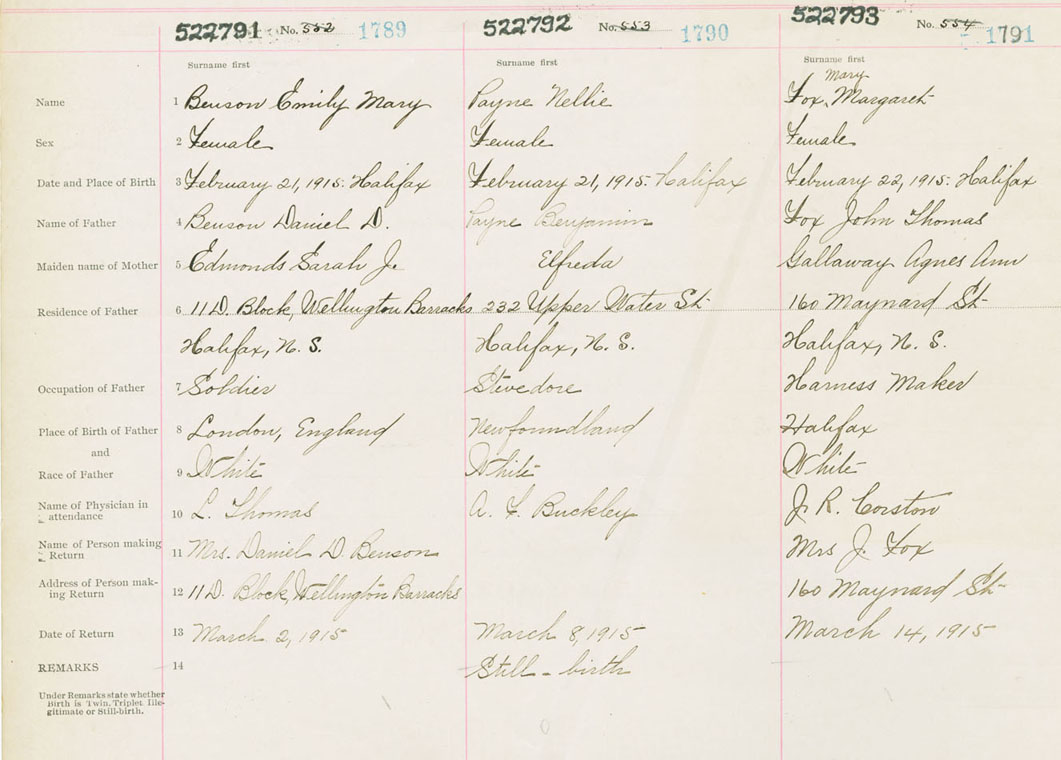 522791 No. 552 1789 522792 No. 553 1790 522793 No. 554 1791
Surname first Surname first Surname first
Mary
Name 1 Benson Emily Mary Payne Nellie Fox, Margaret
Sex 2 Female Female Female
Date and Place of Birth 3 February 21, 1915. Halifax February 21, 1915. Halifax February 22, 1915. Halifax
Name of Father 4 Benson Daniel D. Payne Benjamin Fox John Thomas
Maiden name of Mother 5 Edmonds Sarah J. Elfreda Gallaway Agnes Ann
Residence of Father 6 11 D. Block, Wellington Barracks 232 Upper Water St 160 Maynard St
Halifax, N. S. Halifax, N. S. Halifax, N. S.
Occupation of Father 7 Soldier Stevedore Harness Maker
Place of Birth of Father 8 London, England Newfoundland Halifax
and
Race of Father 9 White White White
Name of Physician in
attendance 10 L. Thomas A. F. Buckley J. R. Corston
Name of Person making
Return 11 Mrs. Daniel D. Benson Mrs J. Fox
Address of Person mak-
ing Return 12 11 D. Block, Wellington Barracks 160 Maynard St
Date of Return 13 March 2, 1915 March 8, 1915 March 14, 1915
REMARKS 14 Still - birth
Under Remarks state whether
Birth is Twin, Triplet, Ille-
gitimate or Still-birth.